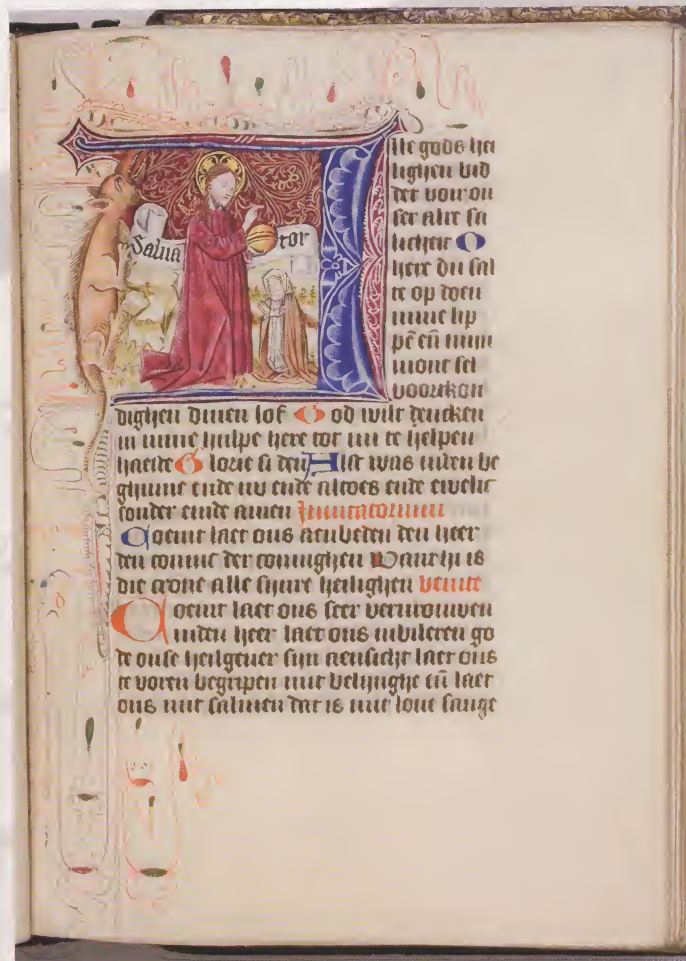 Salua tor
lle gods hei
lighen bid
det voir on
ser alre sa
licheit O
here du sal
te op doen
mine lip
pē eñ mijn
mont sel
voorkon
dighen dinen lof God wilt dencken
in mine hulpe here tot mi te helpen
haeste Glorie si den Alst was inden be
ghinne ende nv ende altoes ende ewelic
sonder einde amen Inuitatorium
Coemt laet ons aenbeden den heer
den coninc der coninghen Want hi is
die crone alle sijnre heilighen venite
Coemt laet ons seer verurouwen
inden heer laet ons iubileren go
de onse heilgeuer sijn aensicht laet ons
te voren begripen mit belijnghe eñ laet
ons mit salmen dat is mit loue sange